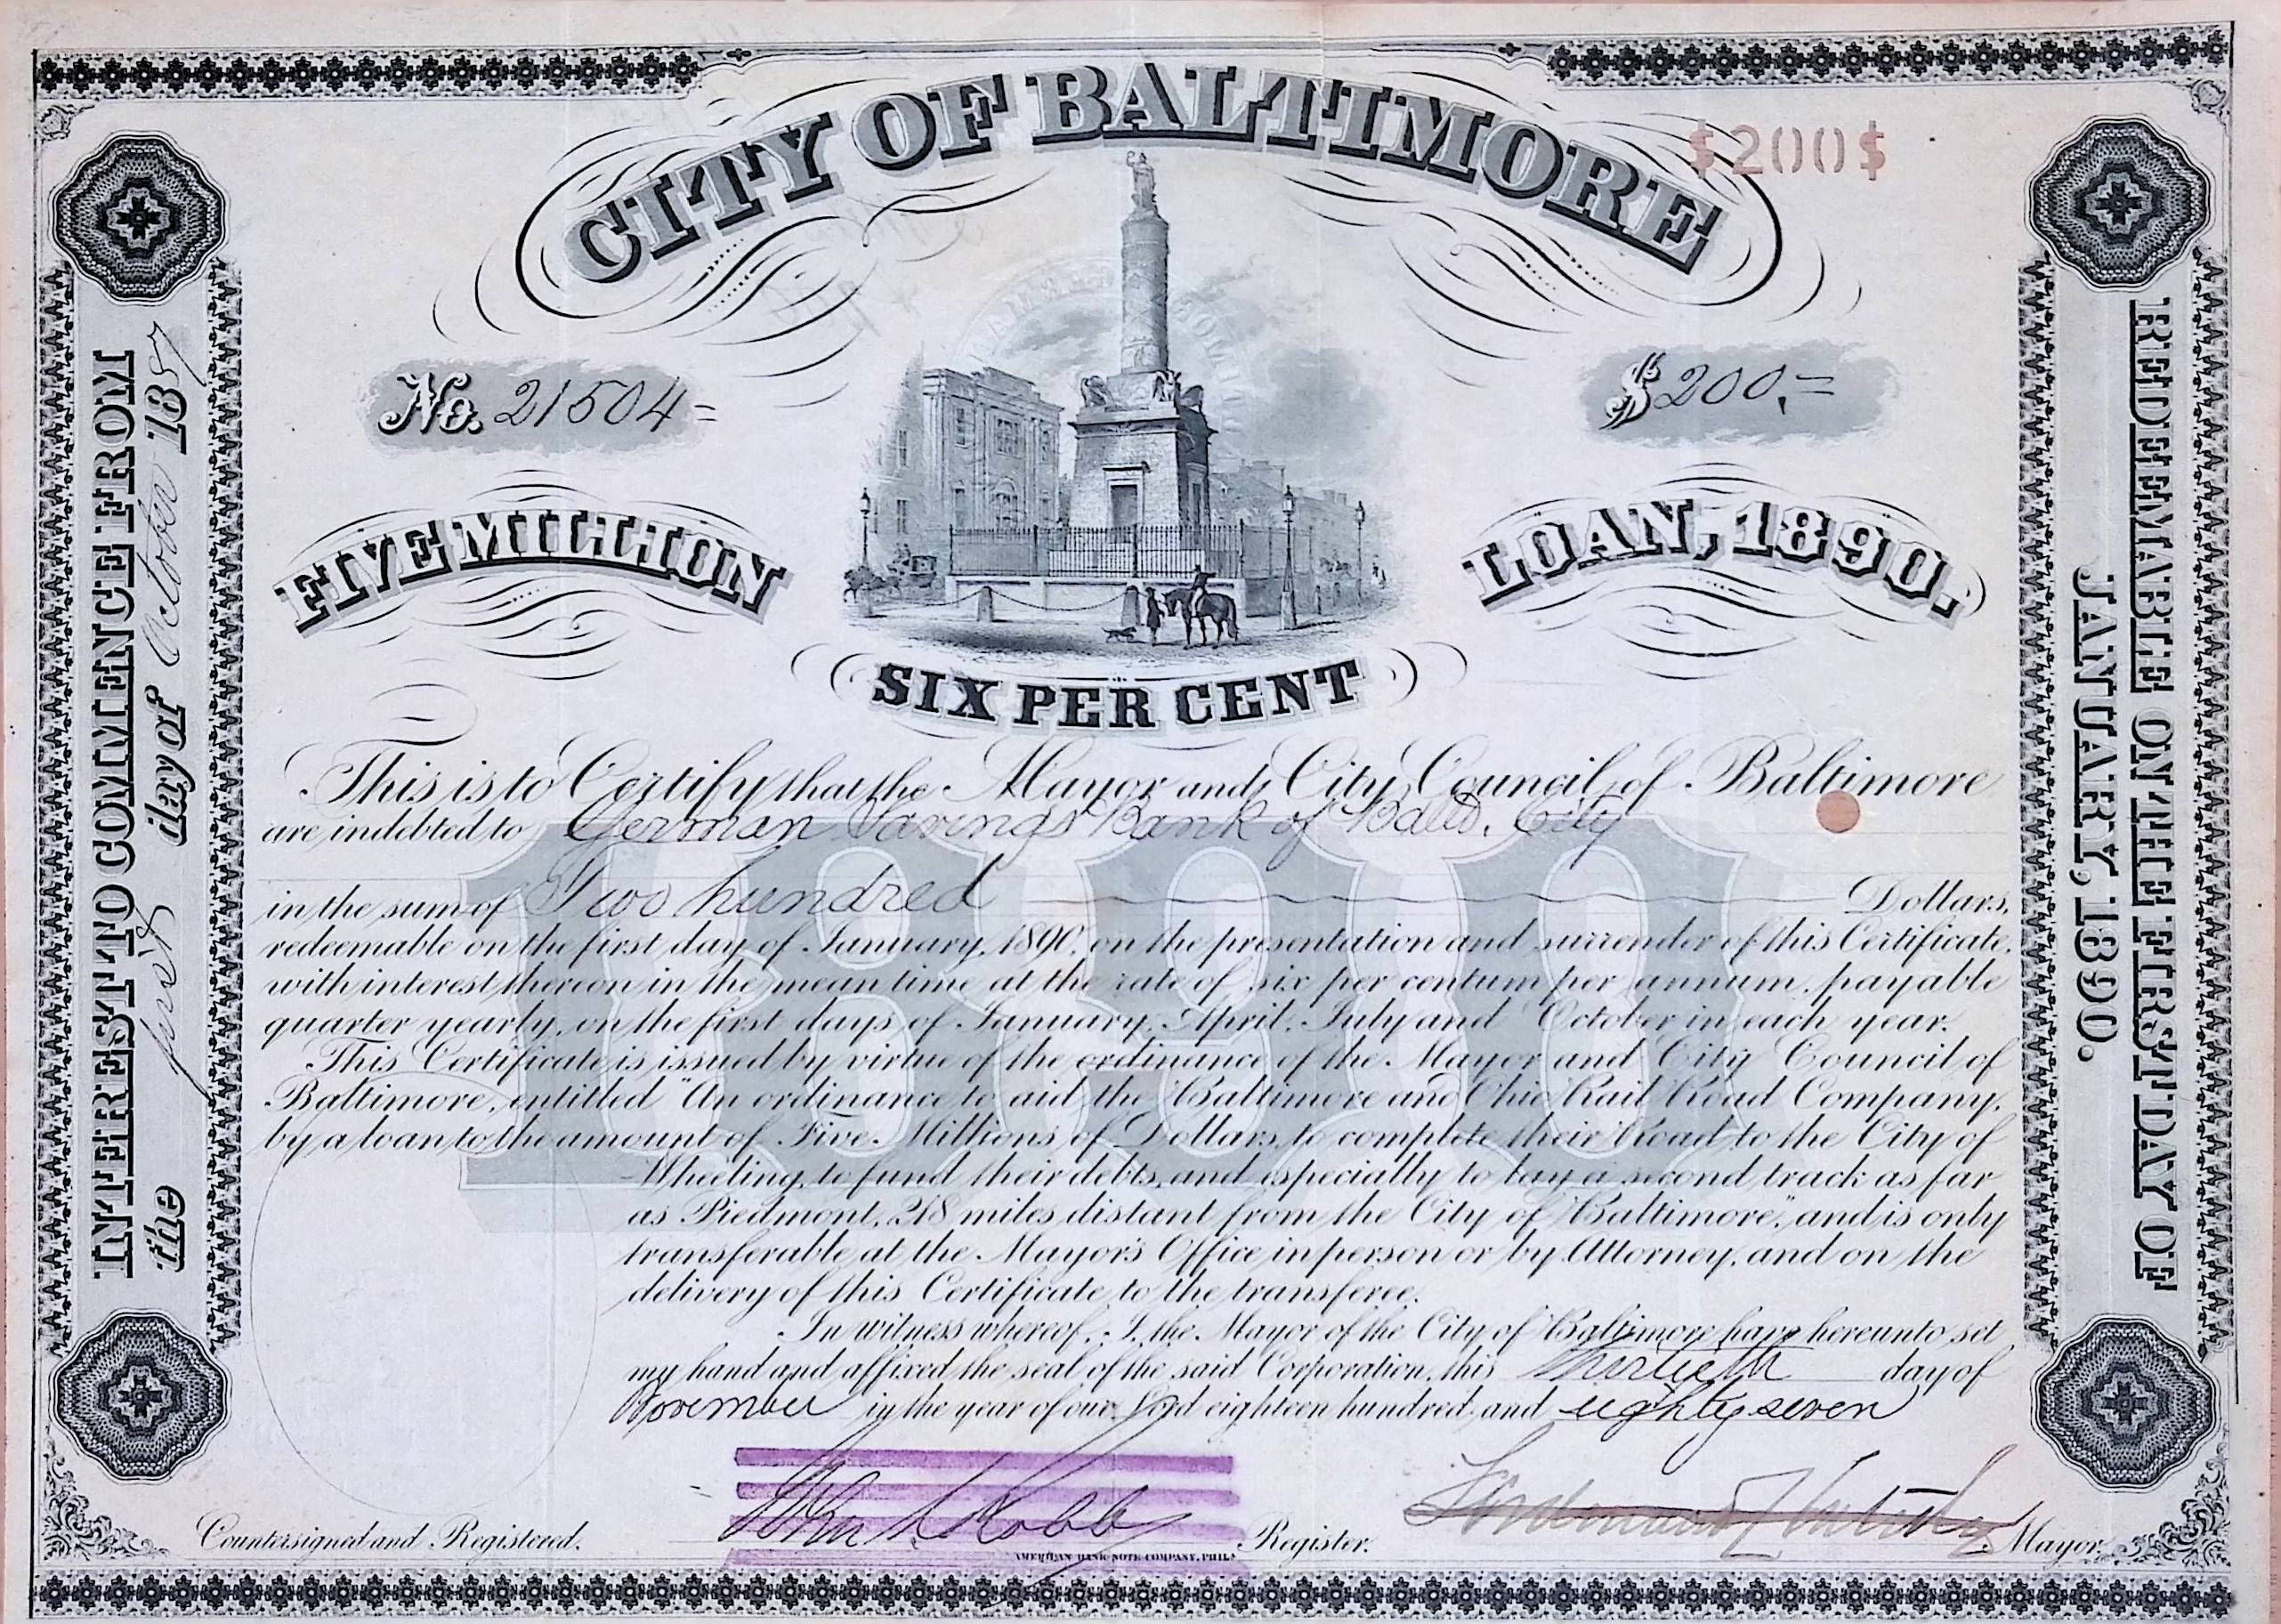 CITY OF BALTIMORE
$200$
No. 21504=
$200,=
FIVE MILLION
LOAN, 1890.
SIX PER CENT
INTEREST TO COMMENCE FROM
the first day of October 1887
REDEEMABLE ON THE FIRST DAY OF
JANUARY, 1890.
This is to Certify that the Mayor and City Council of Baltimore
are indebted to German Savings Bank of Balto. City
in the sum of Two hundred Dollars,
redeemable on the first day of January, 1890, on the presentation and surrender of this Certificate,
with interest thereon in the mean time at the rate of six per centum per annum, payable
quarter yearly, on the first days of January, April, July and October in each year.
This Certificate is issued by virtue of the ordinance of the Mayor and City Council of
Baltimore, entitled "An ordinance to aid the Baltimore and Ohio Rail Road Company,
by a loan to the amount of Five Millions of Dollars, to complete their Road to the City of
Wheeling, to fund their debts, and especially to lay a second track as far
as Piedmont, 218 miles distant from the City of Baltimore", and is only
transferable at the Mayor's Office in person or by Attorney, and on the
delivery of this Certificate to the transferee.
In witness whereof, I, the Mayor of the City of Baltimore have hereunto set
my hand and affixed the seal of the said Corporation, this thirtieth day of
November in the year of our Lord eighteen hundred and eighty seven
1890
Countersigned and Registered.
John A Robb Register.
Mayor.
AMERICAN BANK NOTE COMPANY, PHILA